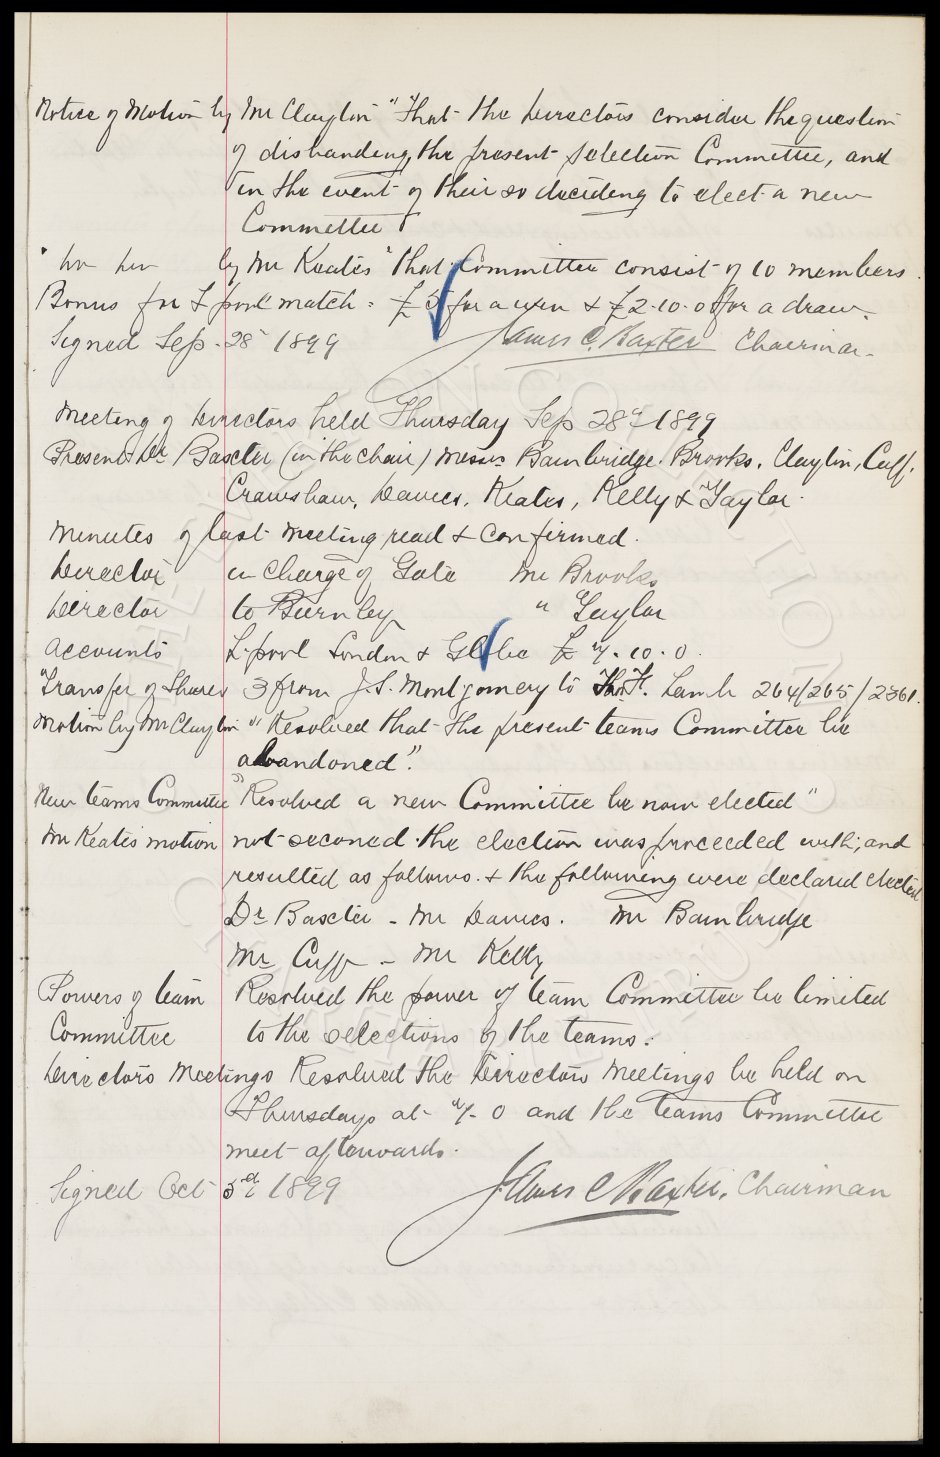 Notice of Motion by Mr Clayton "That the Directors consider the question
of disbanding the present selection Committee, and
in the event of their so deciding to elect a new
Committee
" Do Do by Mr Keates "that Committee consist of 10 members.
Bonus for L'pool match. £5 for a win & £2.10.0 for a draw.
Signed Sep. 28 1899 James C. Baxter Chairman
Meeting of Directors held Thursday Sep 28th 1899
Present Dr Baxter (in the chair) Messrs Bainbridge. Brooks. Clayton, Cuff,
Crawshaw, Davies, Keates, Kelly & Taylor.
Minutes of last meeting read & confirmed.
Director in charge of Gate Mr Brooks
Director to Burnley " Taylor
Accounts L'pool London & Globe £7.10.0.
Transfer of Shares 3 from J.S. Montgomery to Thos. H. Lamb 264/265/2361.
Motion by Mr Clayton "Resolved that the present teams Committee be
abandoned".
New teams Committee "Resolved a new Committee be now elected"
Mr Keates motion not seconed the election was proceeded with; and
resulted as follows. & the following were declared elected
Dr Baxter - Mr Davies. Mr Bainbridge
Mr Cuff - Mr Kelly
Powers of team Resolved the power of team Committee be limited
Committee to the selections of the teams.
Directors Meetings Resolved the Directors Meetings be held on
Thursdays at 7-0 and the Teams Committee
meet afterwards.
Signed Oct 5th 1899 James C Baxter, Chairman